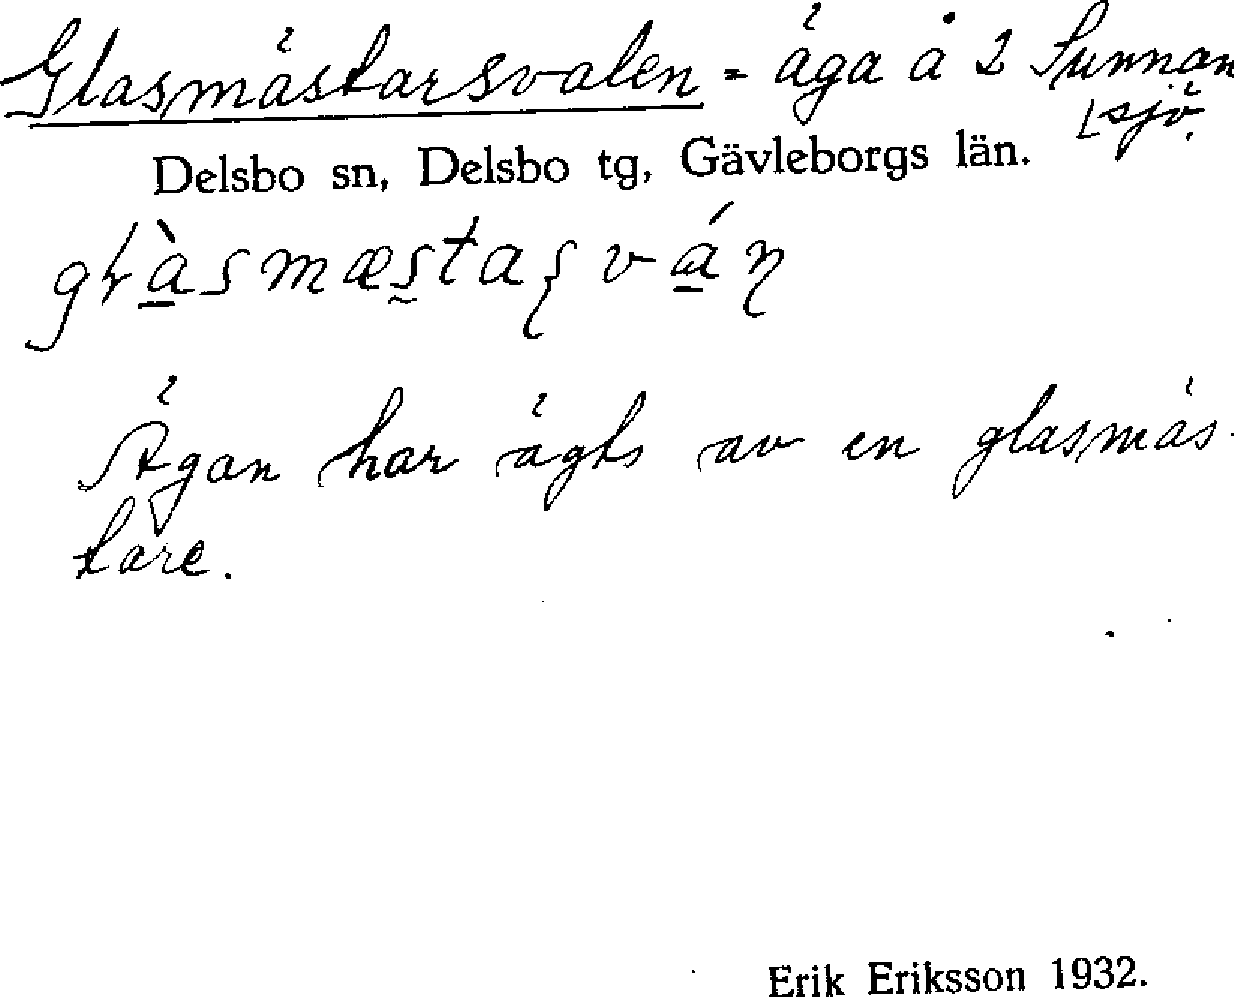 Glasmästarsvalen = äga å 2 Sunnan
sjö.
Delsbo sn, Delsbo tg, Gävleborgs län.
Ägan har ägts av en glasmäs-
tare.
Erik Eriksson 1932.